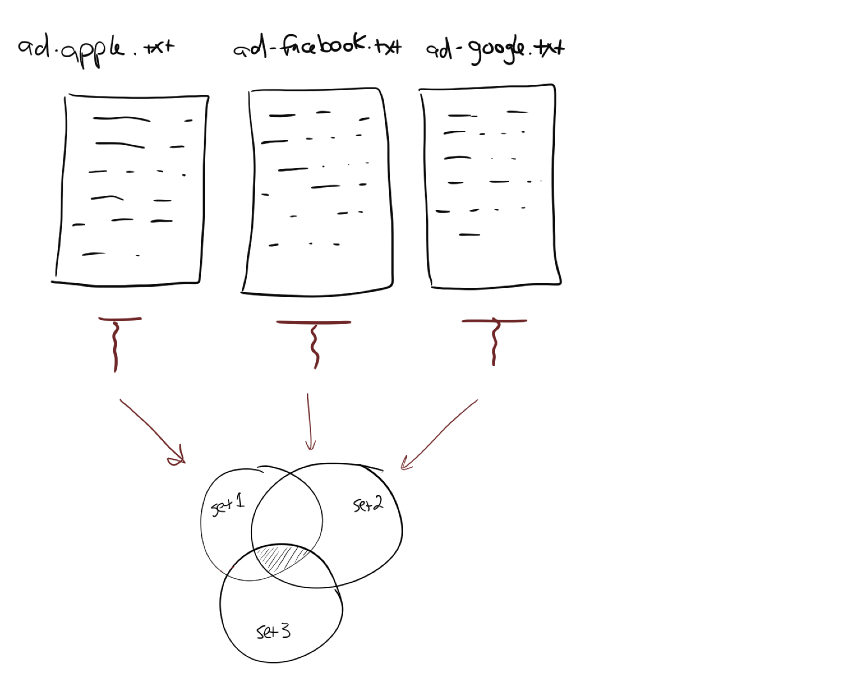 ad-apple.txt
ad-facebook.txt
ad-google.txt
set1
set2
set3